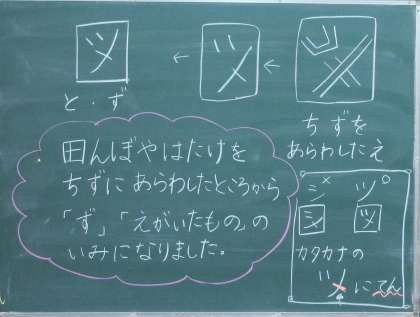 と・ず
ちずを
あらわしたえ
田んぼやはたけを
ちずにあらわしたところから
「ず」「えがいたもの」の
いみになりました。
カタカナの
ツメにてん